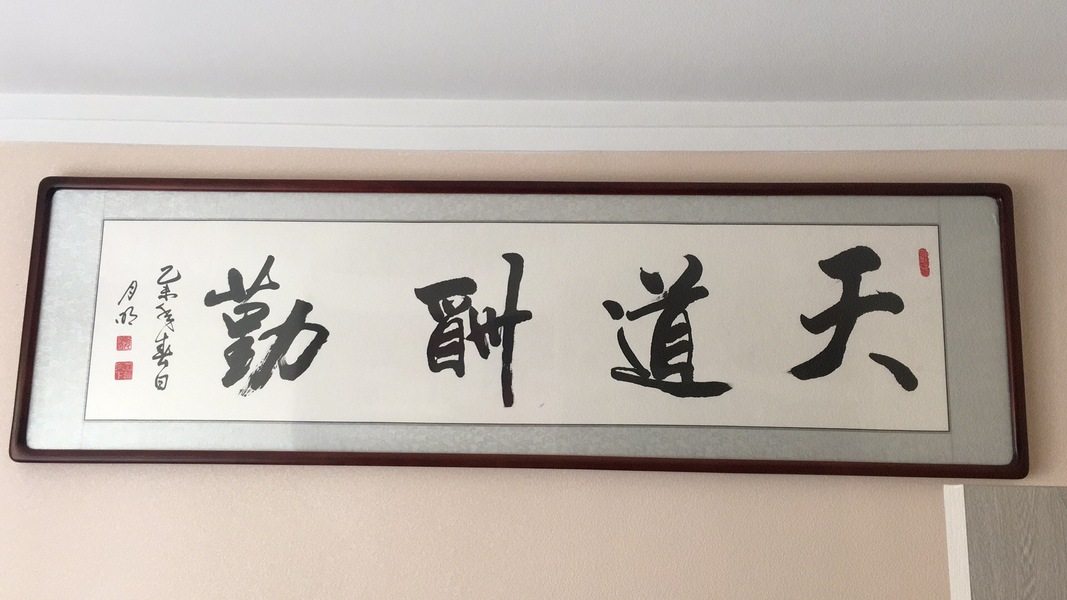 天道酬勤
乙未年春日
月明